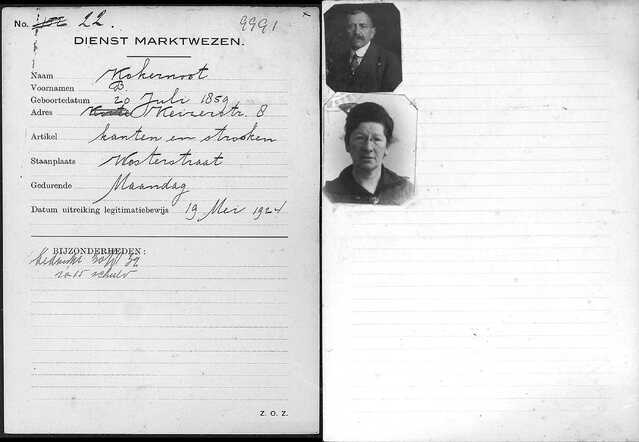 No. 22. 9991
DIENST MARKTWEZEN.
Naam Kokernoot
Voornamen B.
Geboortedatum 20 Juli 1859
Adres Keizerstr. 8
Artikel kanten en strooken
Staanplaats Westerstraat
Gedurende Maandag
Datum uitreiking legitimatiebewijs 19 Mei 1924
BIJZONDERHEDEN:
schuld
Z. O. Z.